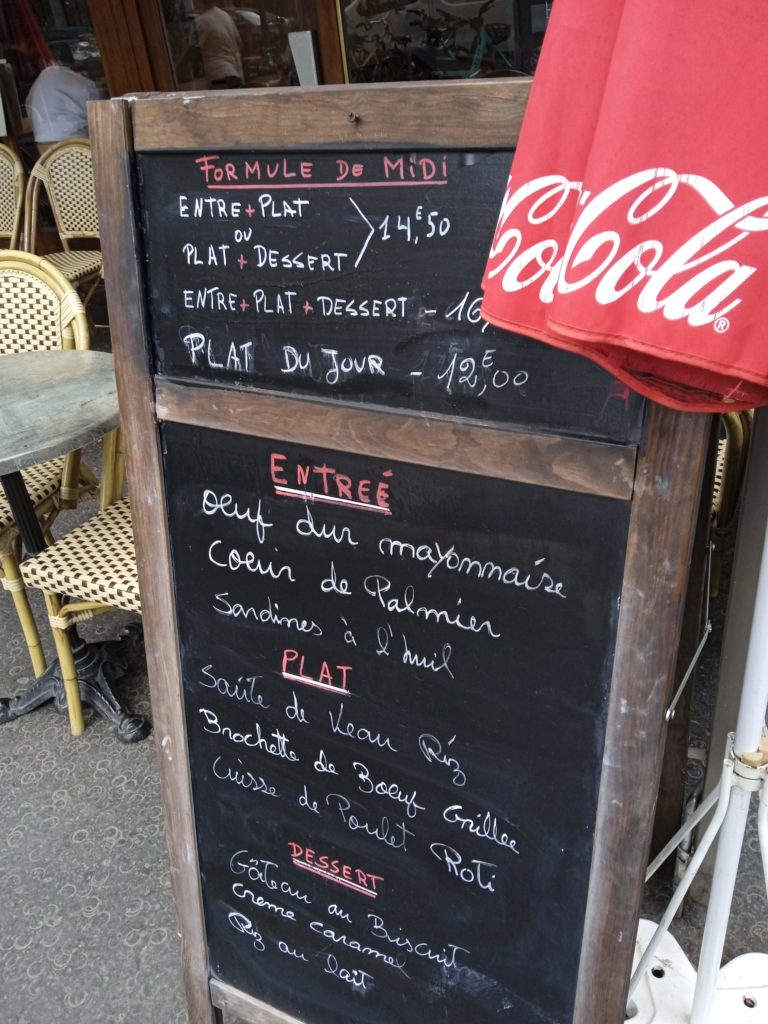 FORMULE DE MIDI
ENTRE+PLAT
OU
PLAT+DESSERT
14,E50
ENTRE+PLAT+DESSERT - 16,
PLAT DU JOUR - 12,E00
ENTREÉ
Oeuf dur mayonnaise
Coeur de Palmier
Sardines à l'huil
PLAT
Sauté de Veau Riz
Brochette de Boeuf Grillee
Cuisse de Poulet Roti
DESSERT
Gâteau au Biscuit
creme caramel
Riz au lait
Coca Cola®